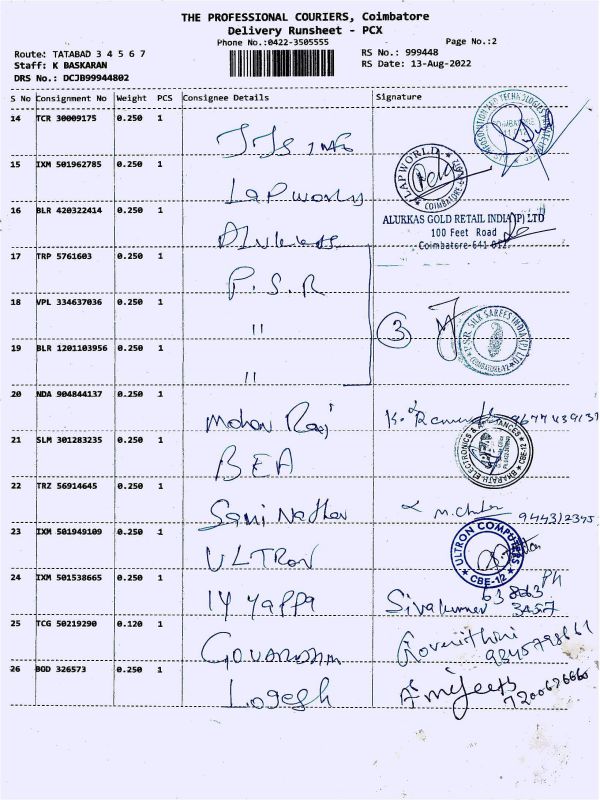 THE PROFESSIONAL COURIERS, Coimbatore
Delivery Runsheet - PCX
Phone No.:0422-3505555
Page No.:2
Route: TATABAD 3 4 5 6 7
RS No.: 999448
Staff: K BASKARAN
RS Date: 13-Aug-2022
DRS No.: DCJB99944802
S No Consignment No Weight PCS Consignee Details Signature
14 TCR 30009175 0.250 1
15 IXM 501962785 0.250 1 Lap works
LAPWORLD
COIMBATORE
16 BLR 420322414 0.250 1
ALURKAS GOLD RETAIL INDIA(P) LTD
100 Feet Road
Coimbatore-641 012.
17 TRP 5761603 0.250 1 P.S.R
18 VPL 334637036 0.250 1 11 3
PSR SILK SAREES INDIA(P) LTD
COIMBATORE-12
19 BLR 1201103956 0.250 1 11
20 NDA 904844137 0.250 1 Mohan Raj
21 SLM 301283235 0.250 1 BEA
BHARATH ELECTRONICS & APPLIANCES
CBE-12
22 TRZ 56914645 0.250 1 Sami Nathan
23 IXM 501949109 0.250 1 ULTRON
ULTRON COMPUTERS
CBE-12
24 IXM 501538665 0.250 1 IYYappa Sivakumar Ph
63 8263
3457
25 TCG 50219290 0.120 1
9845798661
26 BOD 326573 0.250 1 Logesh